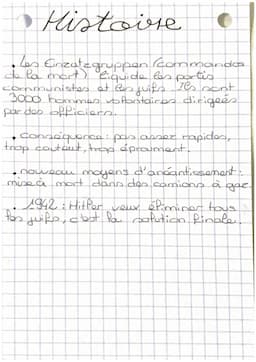 Histoire
• Les Einzatzgruppen (commandos
de la mort) liquide les partis
communistes et les juifs. Ils sont
3000 hommes volontaires dirigées
par des officiers.
• conséquence : pas assez rapides,
trop coûteut, trop éprouvent.
• nouveau moyens d'anéantissement :
mise à mort dans des camions à gaz
• 1942 : Hitler veux éliminer tous
les juifs, c'est la solution finale.